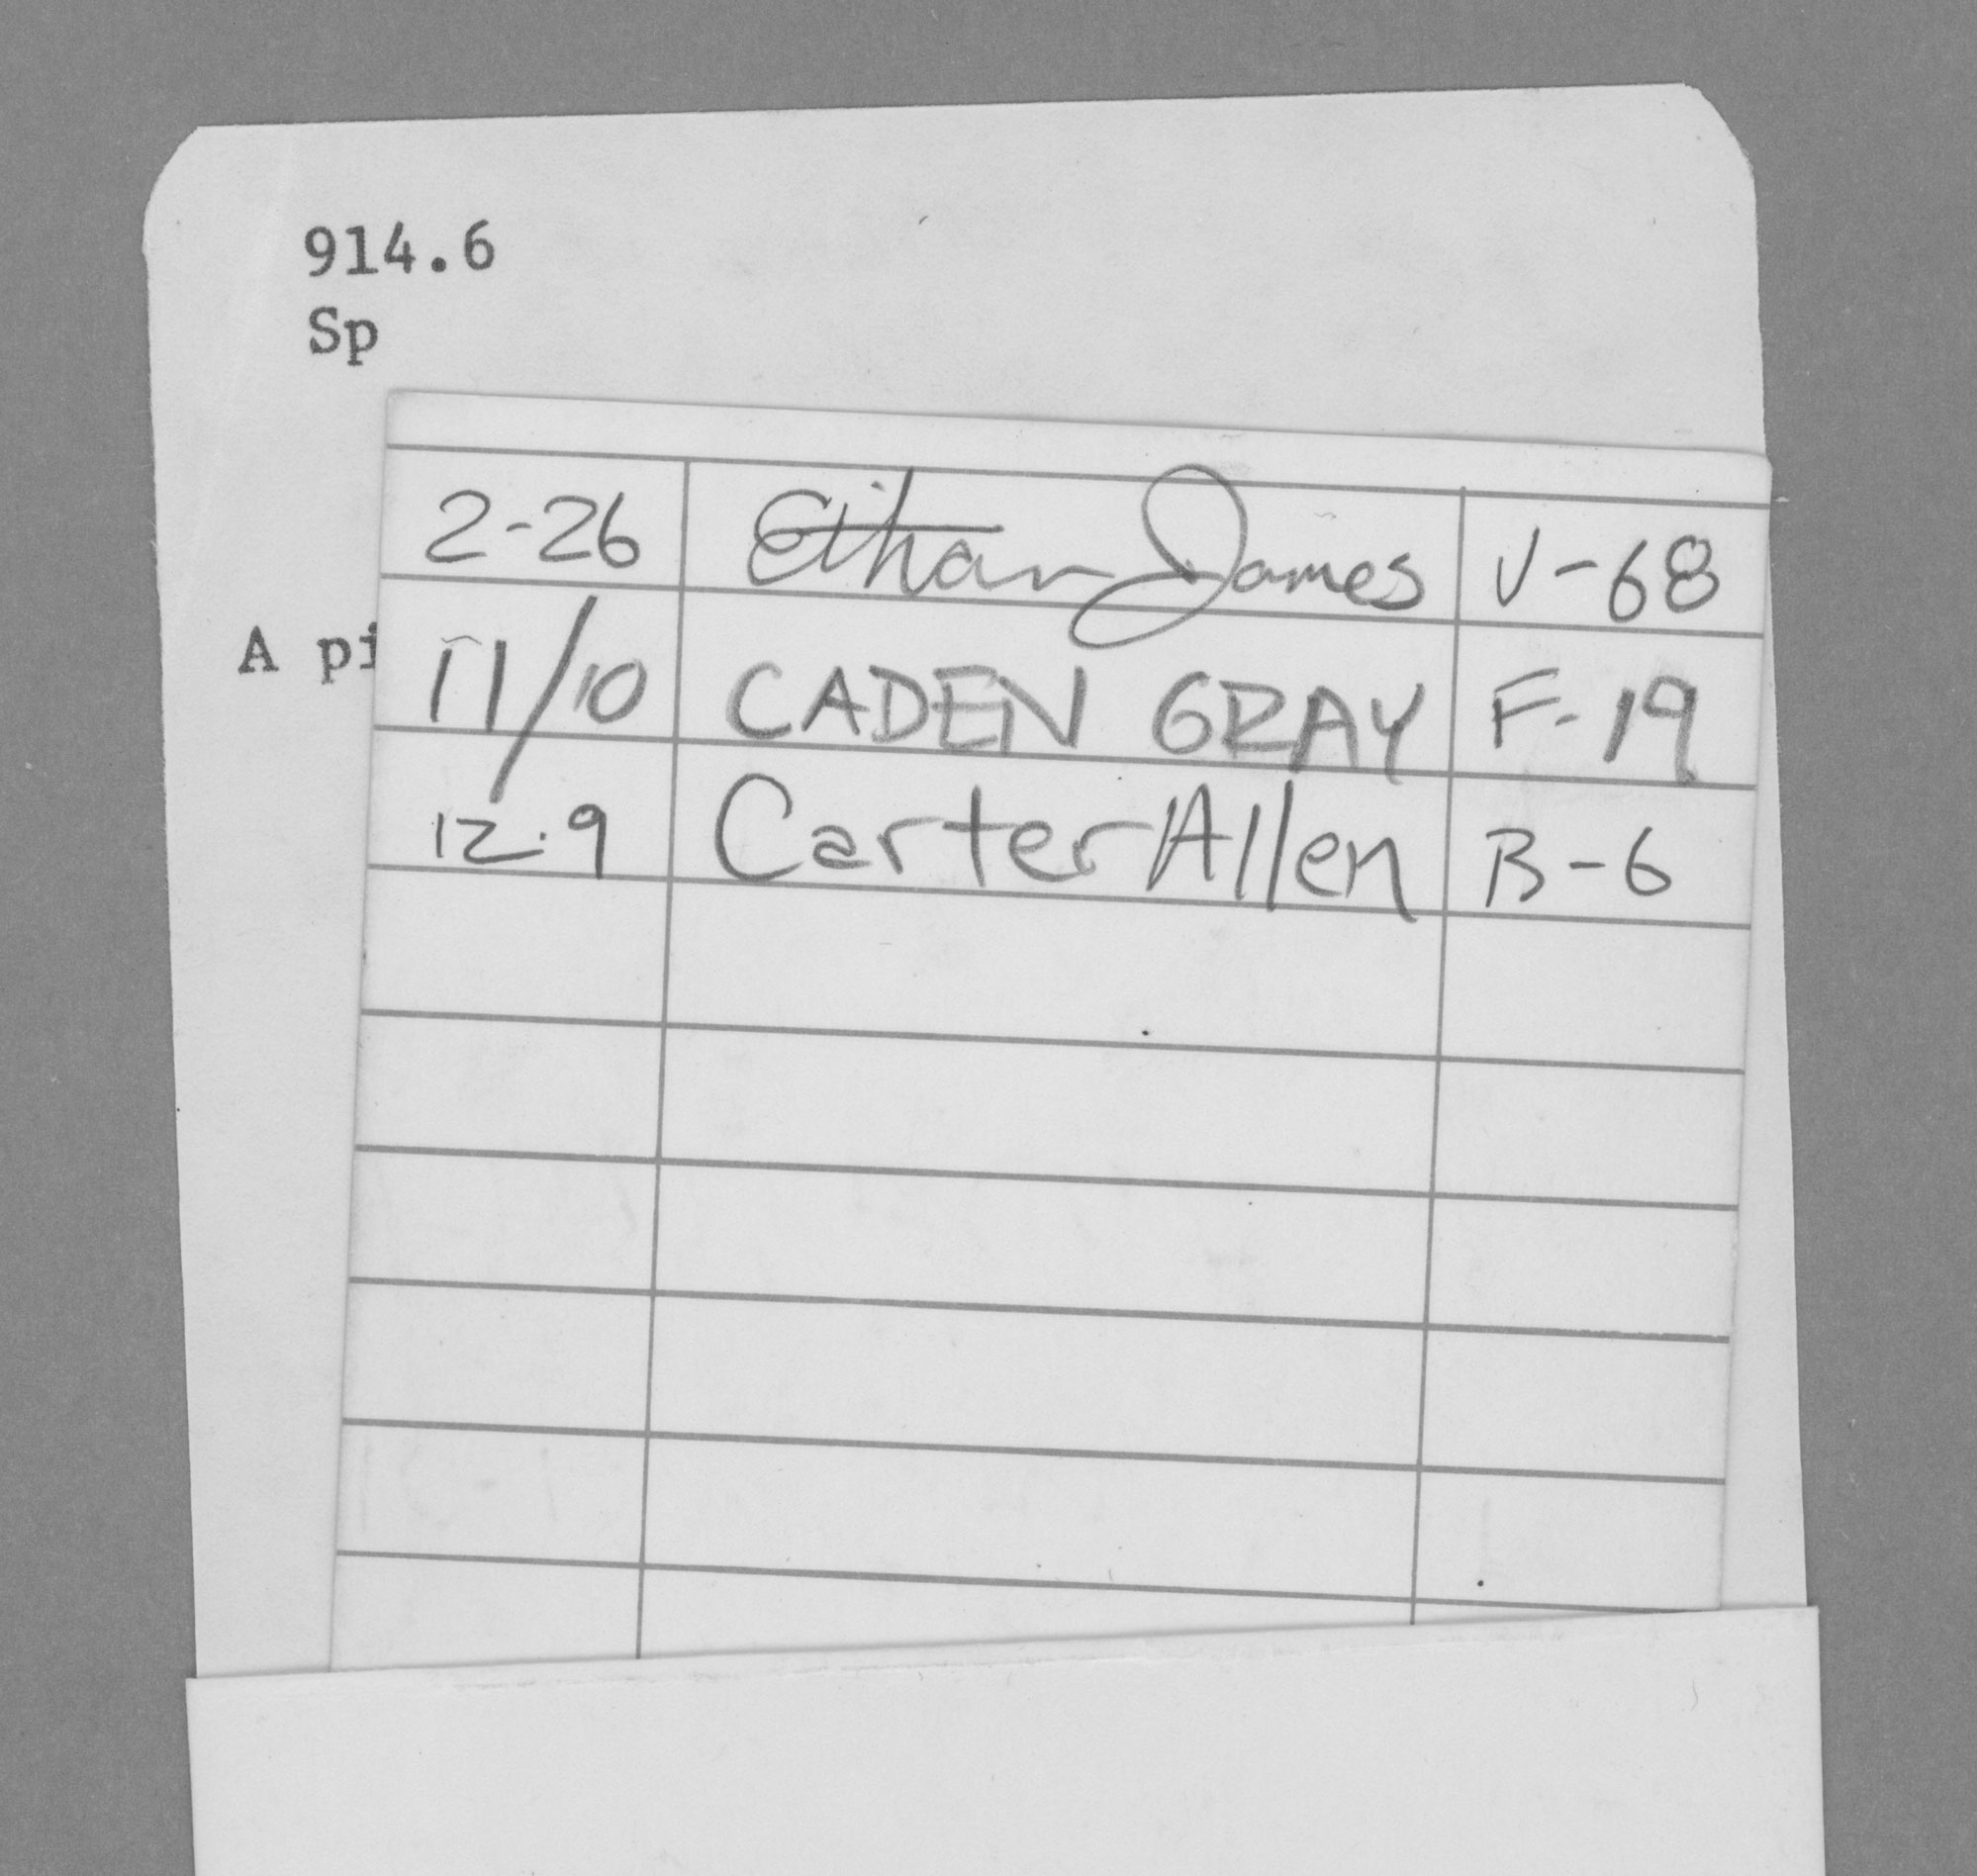 914.6
Sp
A pi
2-26 Ethan James V-68
11/10 CADEN GRAY F-19
12.9 Carter Allen B-6